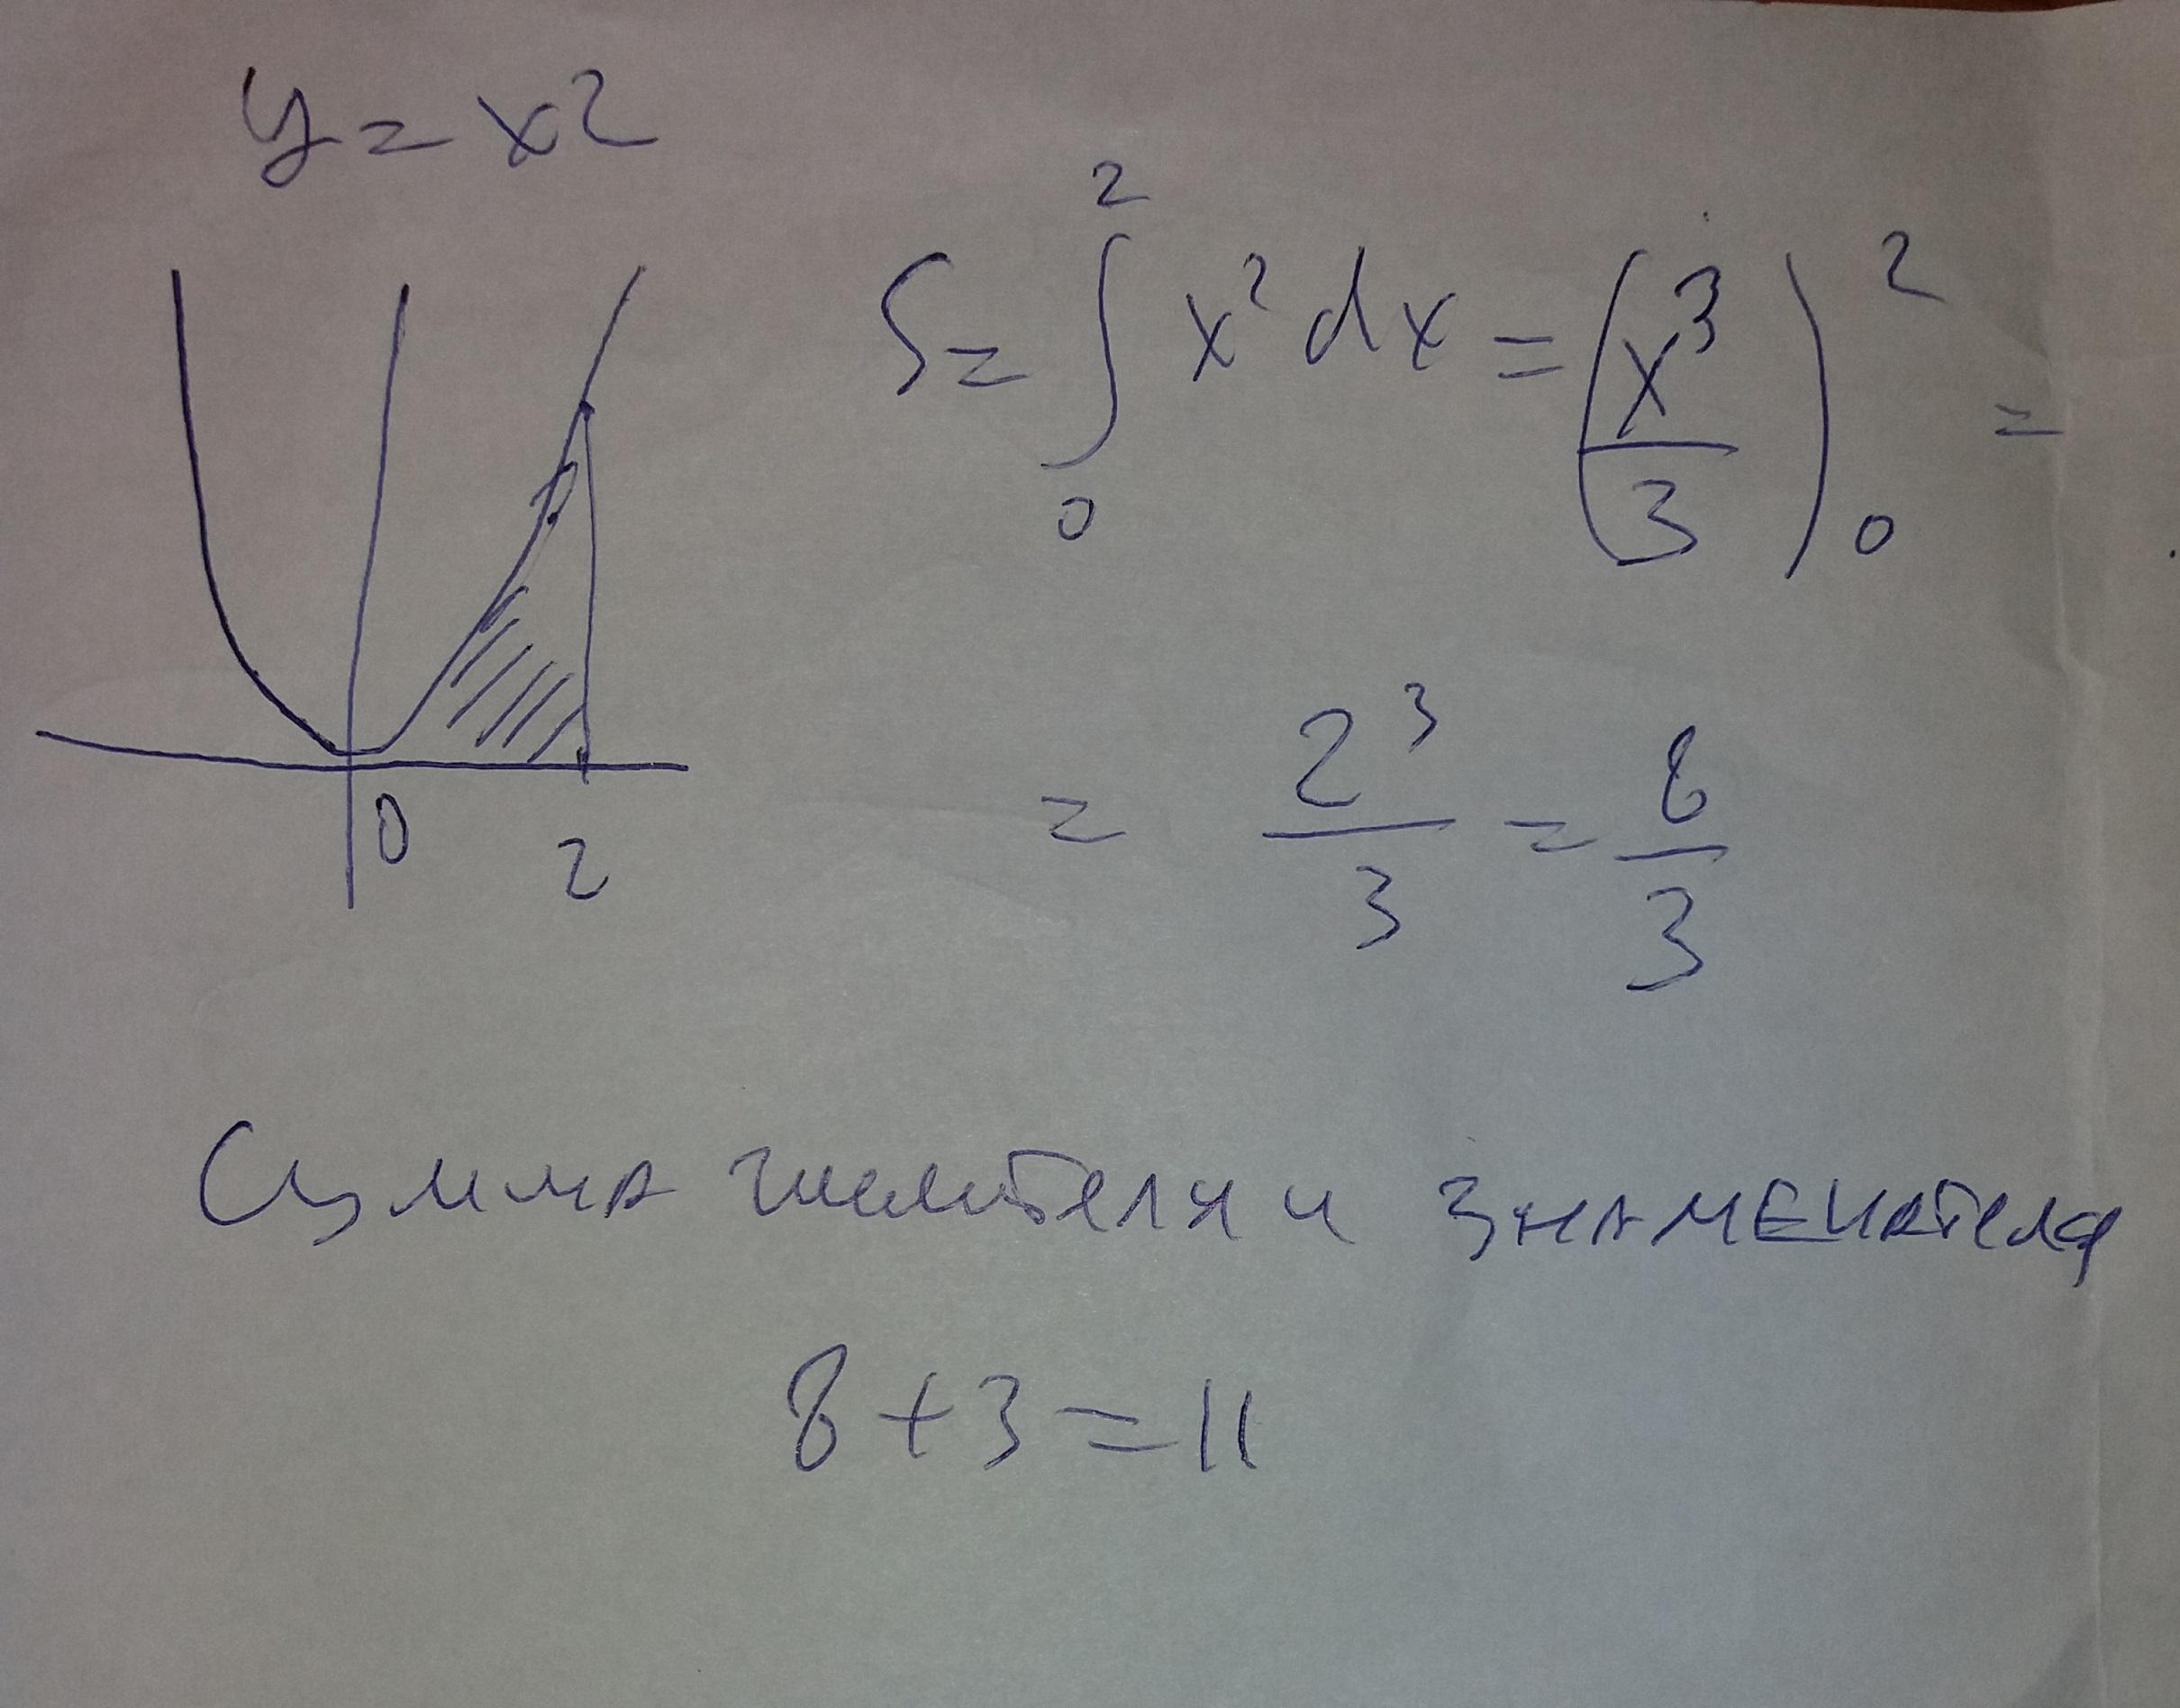 y = x2
S = ∫₀² x² dx = (x³/3)₀² =
0 2
= 2³/3 = 8/3
Сумма числителя и знаменателя
8 + 3 = 11